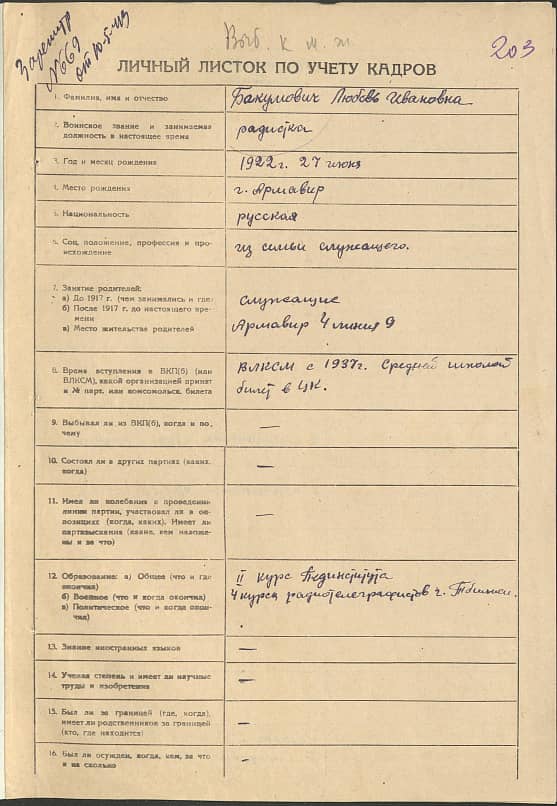 Зарегистр
№ 669
от 10-5-43
203
ЛИЧНЫЙ ЛИСТОК ПО УЧЕТУ КАДРОВ
1. Фамилия, имя и отчество
Бакумович Любовь Ивановна
2. Воинское звание и занимаемая
должность в настоящее время
радистка
3. Год и месяц рождения
1922 г. 27 июня
4. Место рождения
г. Армавир
5. Национальность
русская
6. Соц. положение, профессия и про-
исхождение
из семьи служащего.
7. Занятие родителей:
а) До 1917 г. (чем занимались и где)
б) После 1917 г. до настоящего вре-
мени
в) Место жительства родителей
Служащие
Армавир 4 линия 9
8. Время вступления в ВКП(б) (или
ВЛКСМ), какой организацией принят
и № парт. или комсомольск. билета
ВЛКСМ с 1937 г. Средней школой
билет в ЦК.
9. Выбывал ли из ВКП(б), когда и по-
чему
—
10. Состоял ли в других партиях (каких,
когда)
—
11. Имел ли колебания в проведении
линии партии, участвовал ли в оп-
позициях (когда, каких). Имеет ли
партвзыскания (какие, кем наложе-
ны и за что)
—
12. Образование: а) Общее (что и где
окончил)
б) Военное (что и когда окончил)
в) Политическое (что и когда окон-
чил)
II курс Пединститута
курса радиотелеграфистов г.
13. Знание иностранных языков
—
14. Ученая степень и имеет ли научные
труды и изобретения
—
15. Был ли за границей (где, когда),
имеет ли родственников за границей
(кто, где находится)
—
16. Был ли осужден, когда, кем, за что
и на сколько
-